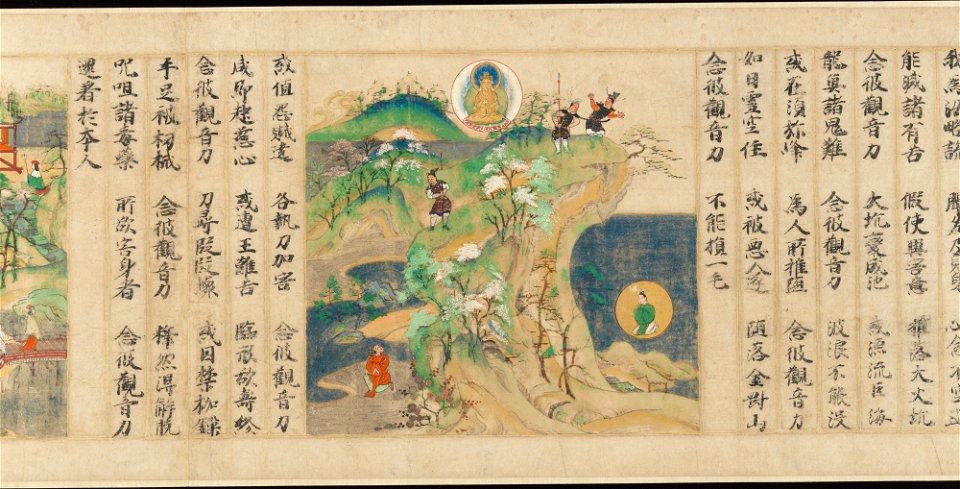 我為汝略說 聞名及見身 心念不空過
能滅諸有苦 假使興害意 推落大火坑
念彼觀音力 火坑變成池 或漂流巨海
龍魚諸鬼難 念彼觀音力 波浪不能沒
或在須弥峰 為人所推墮 念彼觀音力
如日虛空住 或被惡人逐 墮落金剛山
念彼觀音力 不能損一毛
或值怨賊遶 各執刀加害 念彼觀音力
咸即起慈心 或遭王難苦 臨刑欲壽終
念彼觀音力 刀尋段段壞 或囚禁枷鎖
手足被杻械 念彼觀音力 釋然得解脫
呪咀諸毒藥 所欲害身者 念彼觀音力
還著於本人